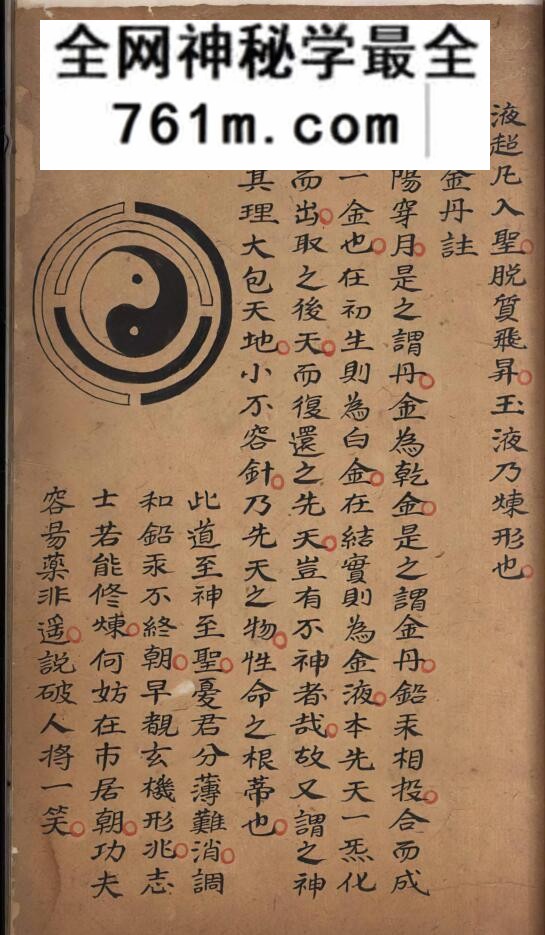 全网神秘学最全
761m.com
液超凡入聖脱質飛昇玉液乃煉形也
金丹註
陽穿月是之謂丹金為乾金是之謂金丹鉛汞相投合而成
一金也在初生則為白金在結實則為金液本先天一炁化
而出取之後天而復還之先天豈有不神者哉故又謂之神
其理大包天地小不容針乃先天之物性命之根蒂也
此道至神至聖憂君分薄難消調
和鉛汞不終朝早覩玄機形兆志
士若能修煉何妨在市居朝功夫
容易藥非遥説破人將一笑